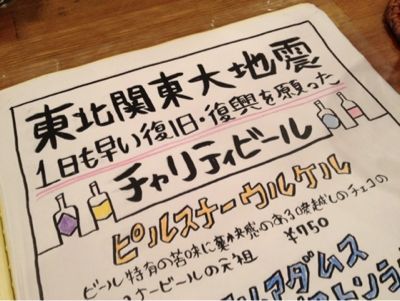 東北関東大地震
1日も早い復旧・復興を願った
チャリティビール
ピルスナーウルケル
ビール特有の苦味に爽快感のある喉越しのチェコの
スナービールの元祖 ¥750
アダムス